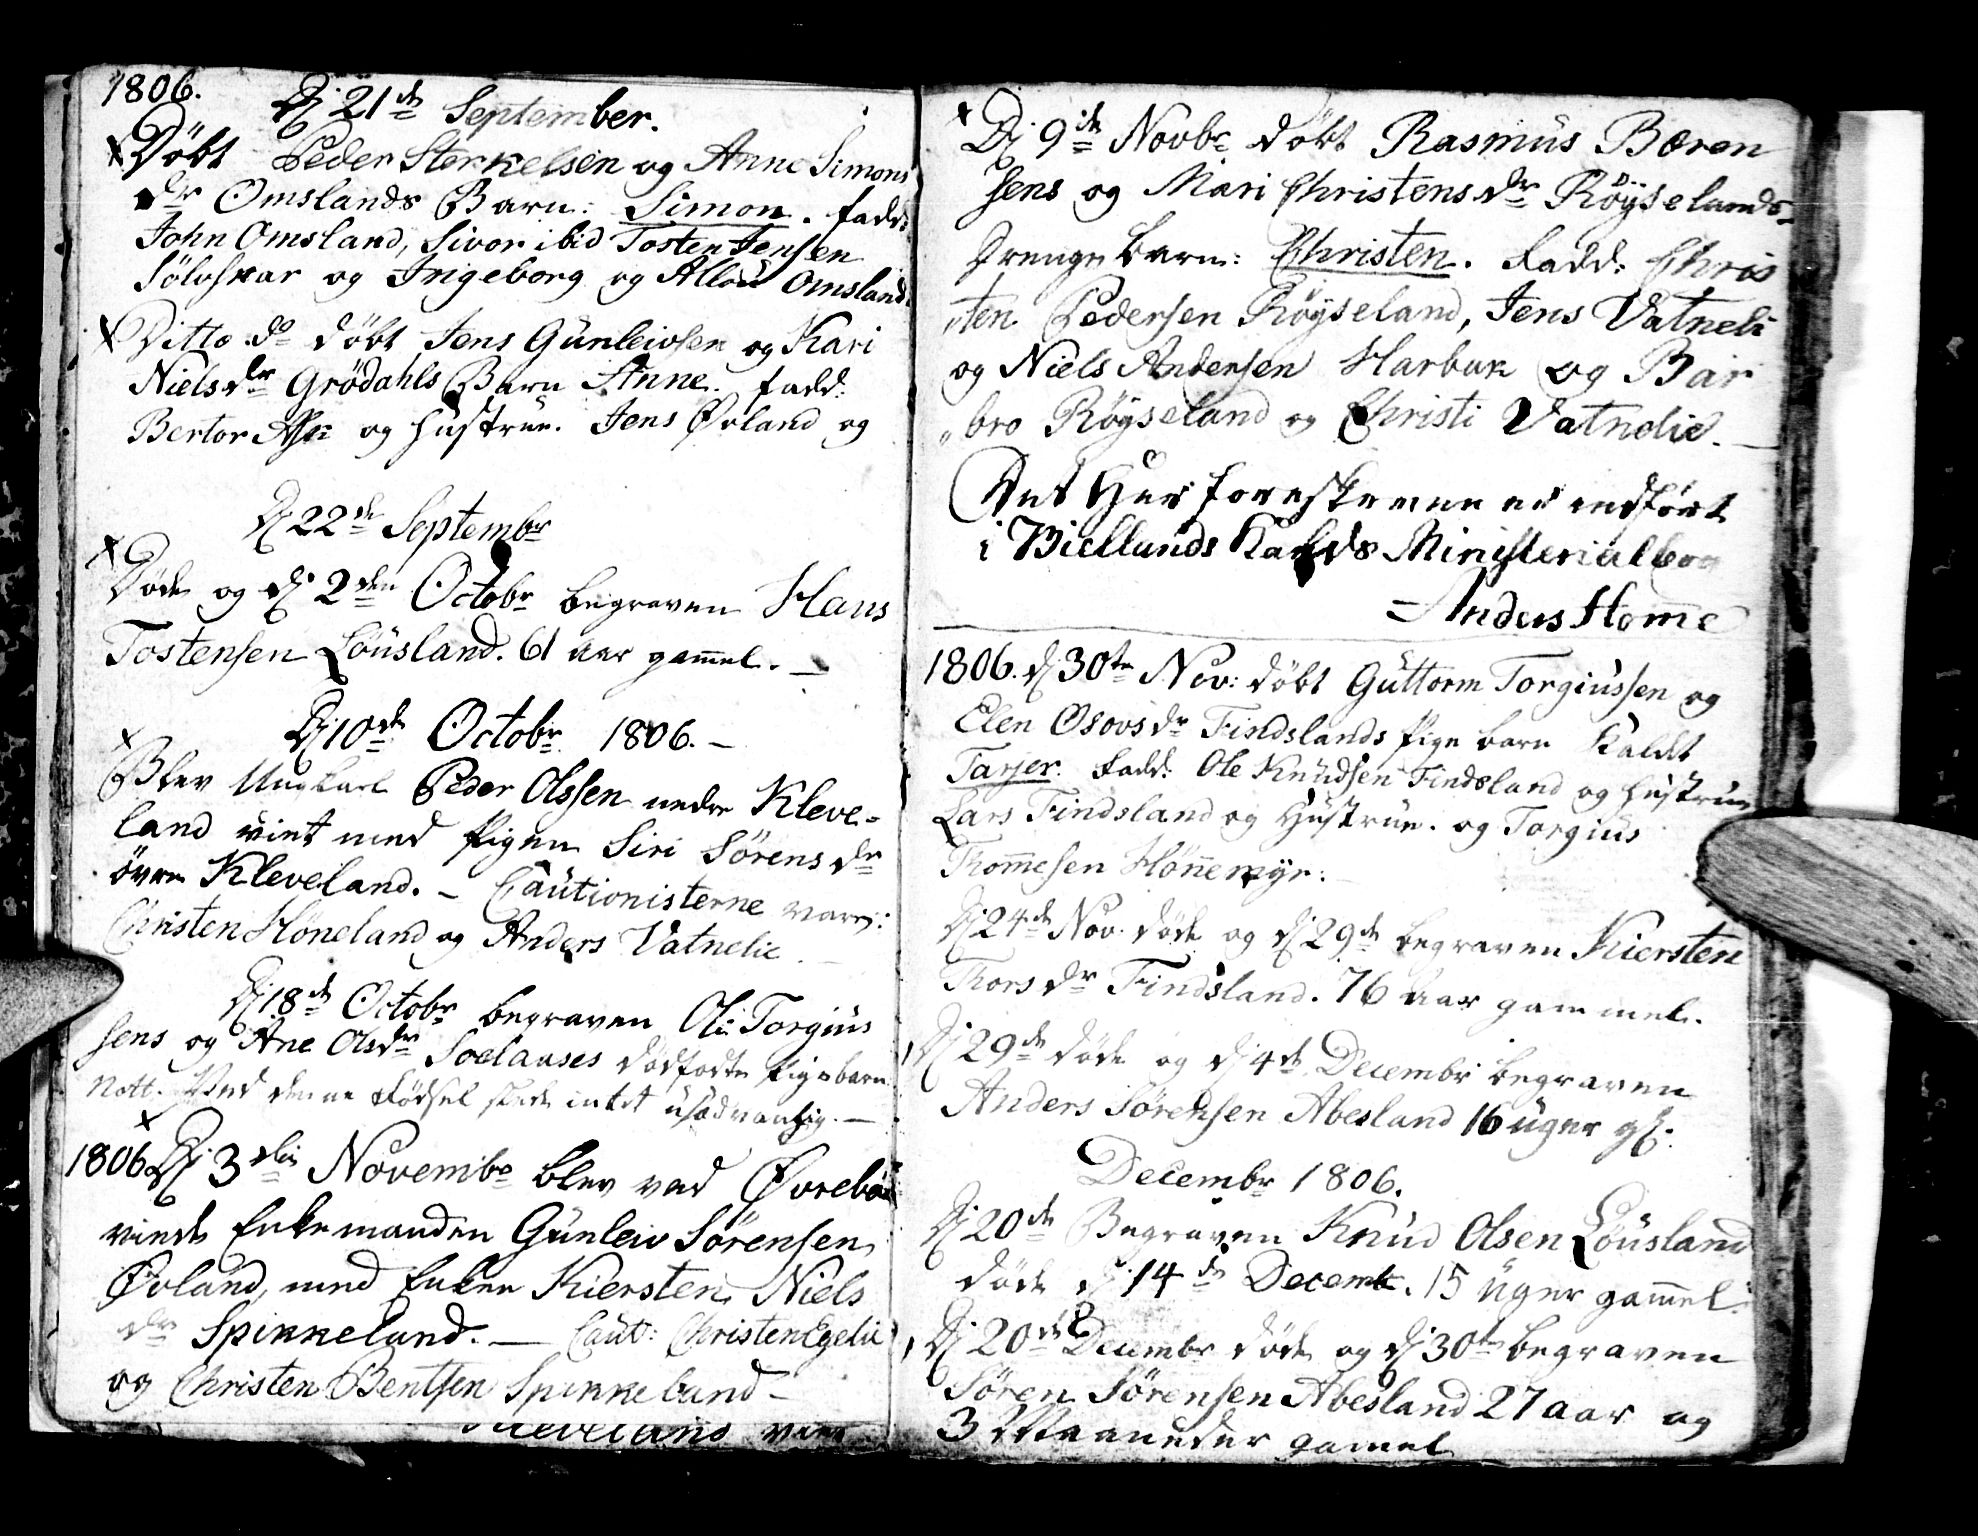 1806.
Dj 21de September.
Döbt Peder Sterkelsen og Anne Simons
dr Omslands Barn: Simon. fadd:
John Omsland, Sivor ibid Tosten Jensen
Sölvskar og Ingeborg og Omsland
Ditto do döbt Jens Gunleivsen og Kari
Nielsdr Grödahls Barn Anne. fadd:
Bertor og hustrue. Jens Øvland og
Dj 22de Septembr
Döde og dj 2den Octobr begraven Hans
Tostensen Löusland. 61 aar gam̄el. —
Dj 10de Octobr 1806. —
Blev Ungkarl Peder Olssen nedre Kleve-
land viet med Pigen Siri Sörensdr
övre Kleveland. — Cautionisterne vare:
Christen Höneland og Anders Vatnelie —
Dj 18de Octobr begraven Ole Torgius
sens og Ane Olsdr dödfödte Pigebarn
Nott. Ved denne Födsel skede intet usædvanlig. —
1806 Dj 3die Novembr blev ved Øvrebö
viede Enkemanden Gunleiv Sörensen
Øvland, med Enken Kiersten Niels
dr Spikkeland. — Caut: Christen Egelie
og Christen Bentsen Spikkeland —
Kleveland viet
Dj 9de Novbr döbt Rasmus Bæren
sens og Mari Christensdr Röyselands
Drenge barn: Christen. Fadd: Chris
ten Pedersen Röyseland, Jens Vatneli
og Niels Andersen Harbak og Bar
bro Röyseland og Christi Vatnelie. —
Det Her foreskrevne er indfört
i Biellands Kalds Ministerialbog
Anders Hom̄e
1806. dj 30te Nov: döbt Guttorm Torgiussen og
Elen Osovsdr Findslands Pige barn kaldet
Tarjer. Fadd: Ole Knudsen Findsland og hustrue
Lars Findsland og Hustrue. og Torgius
Thom̄esen Hön̄emyr.
Dj 24de Nov. döde og dj 29de begraven Kiersten
Thorsdr Findsland. 76 aar gammel.
Dj 29de döde og dj 4de Decembr begraven
Anders Sörensen Abesland 16 uger gl.
Decembr 1806.
Dj 20de Begraven Knud Olsen Löusland
döde dj 14de Decemb. 15 uger gam̄el.
Dj 20de Decembr döde og dj 30te begraven
Sören Sörensen Abesland 27 aar og
3 Maaneder gamel